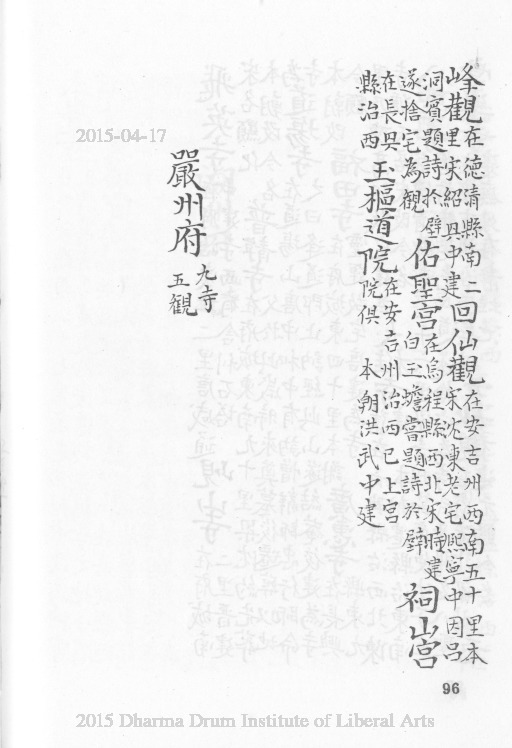 峰觀在德清縣南二
里宋紹興中建
回仙觀在安吉州西南五十里本
宋沈東老宅熙寧中因呂
洞賓題詩於壁
遂捨宅為觀
佑聖宮在烏程縣西北宋時建
白玉蟾嘗題詩於壁
祠山宮
在長興
縣治西
玉樞道院在安吉州治西已上宮
院俱本朝洪武中建
嚴州府
九寺
五觀
96
2015-04-17
2015 Dharma Drum Institute of Liberal Arts